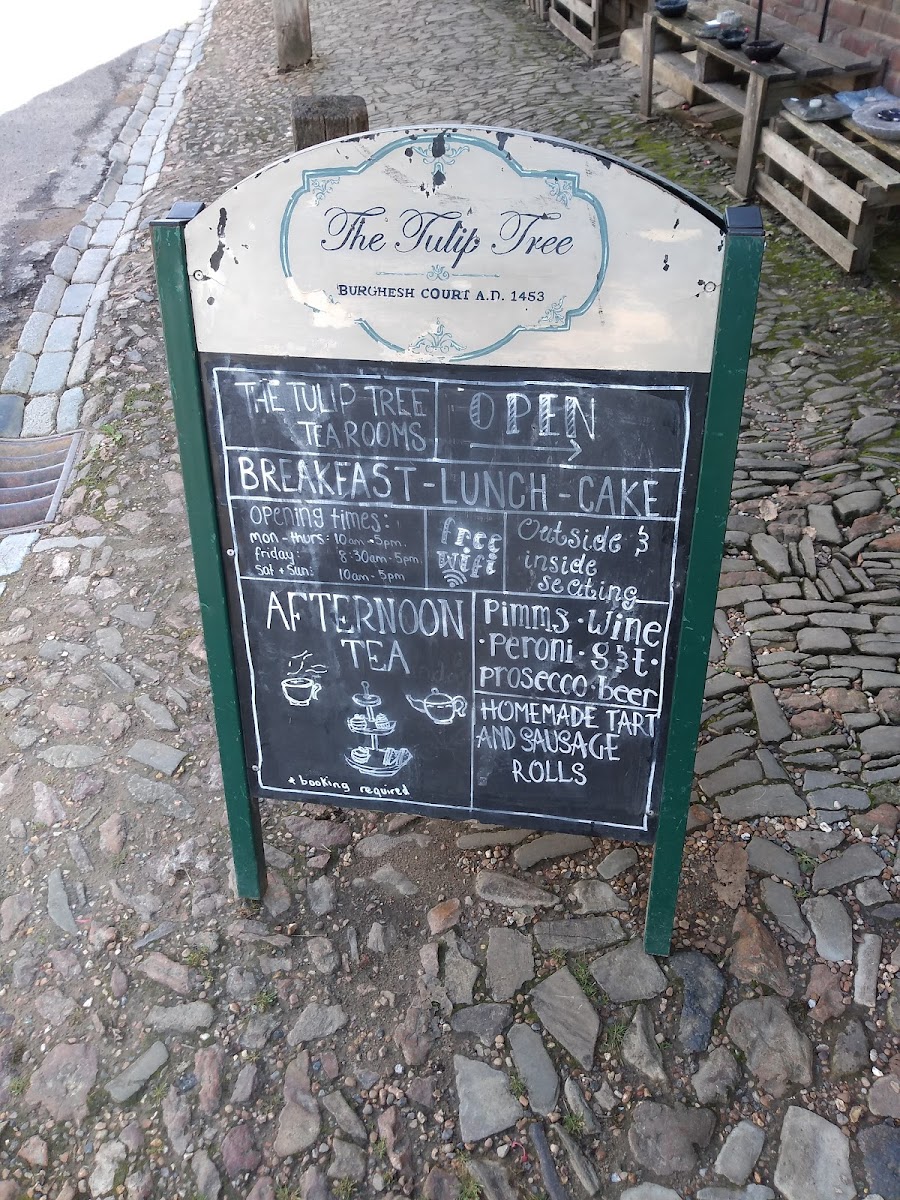 The Tulip Tree
BURGHESH COURT A.D. 1453
THE TULIP TREE
TEAROOMS
OPEN
BREAKFAST - LUNCH - CAKE
opening times:
mon - thurs: 10am - 5pm.
friday: 8:30am - 5pm
Sat + Sun: 10am - 5pm
free
wifi
Outside &
inside
seating
AFTERNOON
TEA
* booking required
Pimms · Wine
· Peroni · g&t ·
prosecco · beer
HOMEMADE TART
AND SAUSAGE
ROLLS